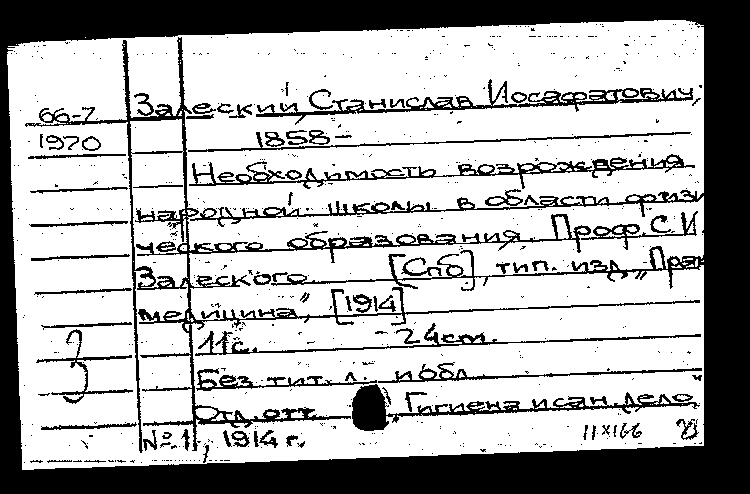 66-7 Залеский, Станислав Иосафатович,
1970 1858-
Необходимость возрождения
народной школы в области физи
ческого образования. Проф. С.И.
Залеского [Спб], тип. изд. „Прак
медицина", [1914]
11 с. 24 cm.
Без тит. л. и обл.
З
Отд. отт. „Гигиена и сан. дело"
№ 1, 1914 г. 11 X 166